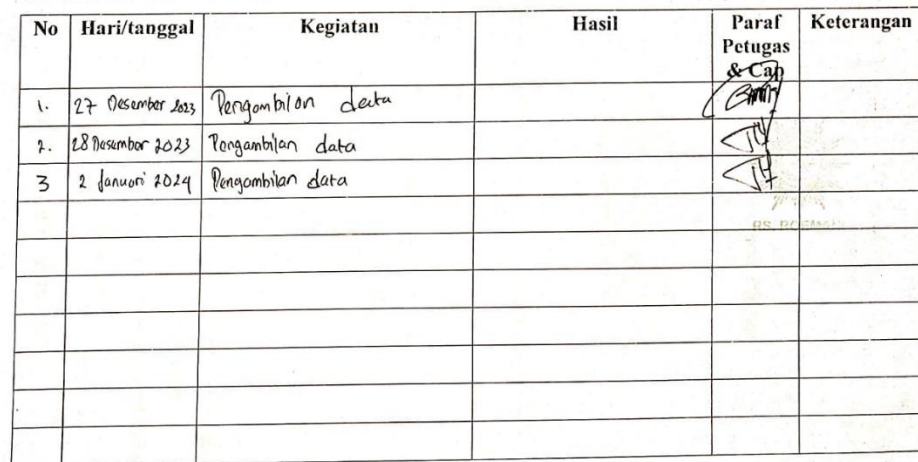 No Hari/tanggal Kegiatan Hasil Paraf Petugas & Cap Keterangan
1. 27 Desember 2023 Pengambilan data
2. 28 Desember 2023 Pengambilan data
3 2 Januari 2024 Pengambilan data
RS ROEMANI